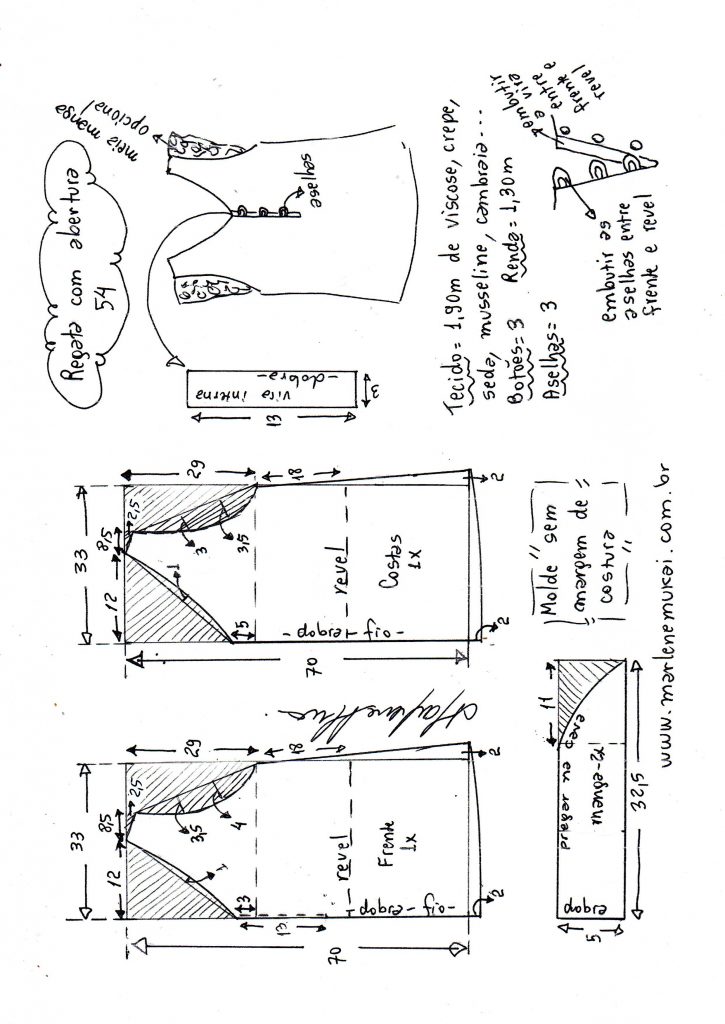 Regata com abertura
54
meia manga
opcional
aselhas
vira interna
-dobra-
13
3
Tecido= 1,90m de viscose, crepe,
seda, musseline, cambraia...
Botões= 3 Renda= 1,30m
Aselhas= 3
embutir
a vira
entre
frente e
revel
embutir as
aselhas entre
frente e revel
33
12
8,5
2,5
29
18
1
3,5
4
3
13
70
revel
Frente
1x
-dobra-fio-
2
2
33
12
8,5
2,5
29
18
1
3
3,5
5
70
revel
Costas
1x
-dobra-fio-
2
2
Molde sem
margem de
costura
11
pregar na cava
manga-2x
dobra
5
32,5
www.marlenemukai.com.br